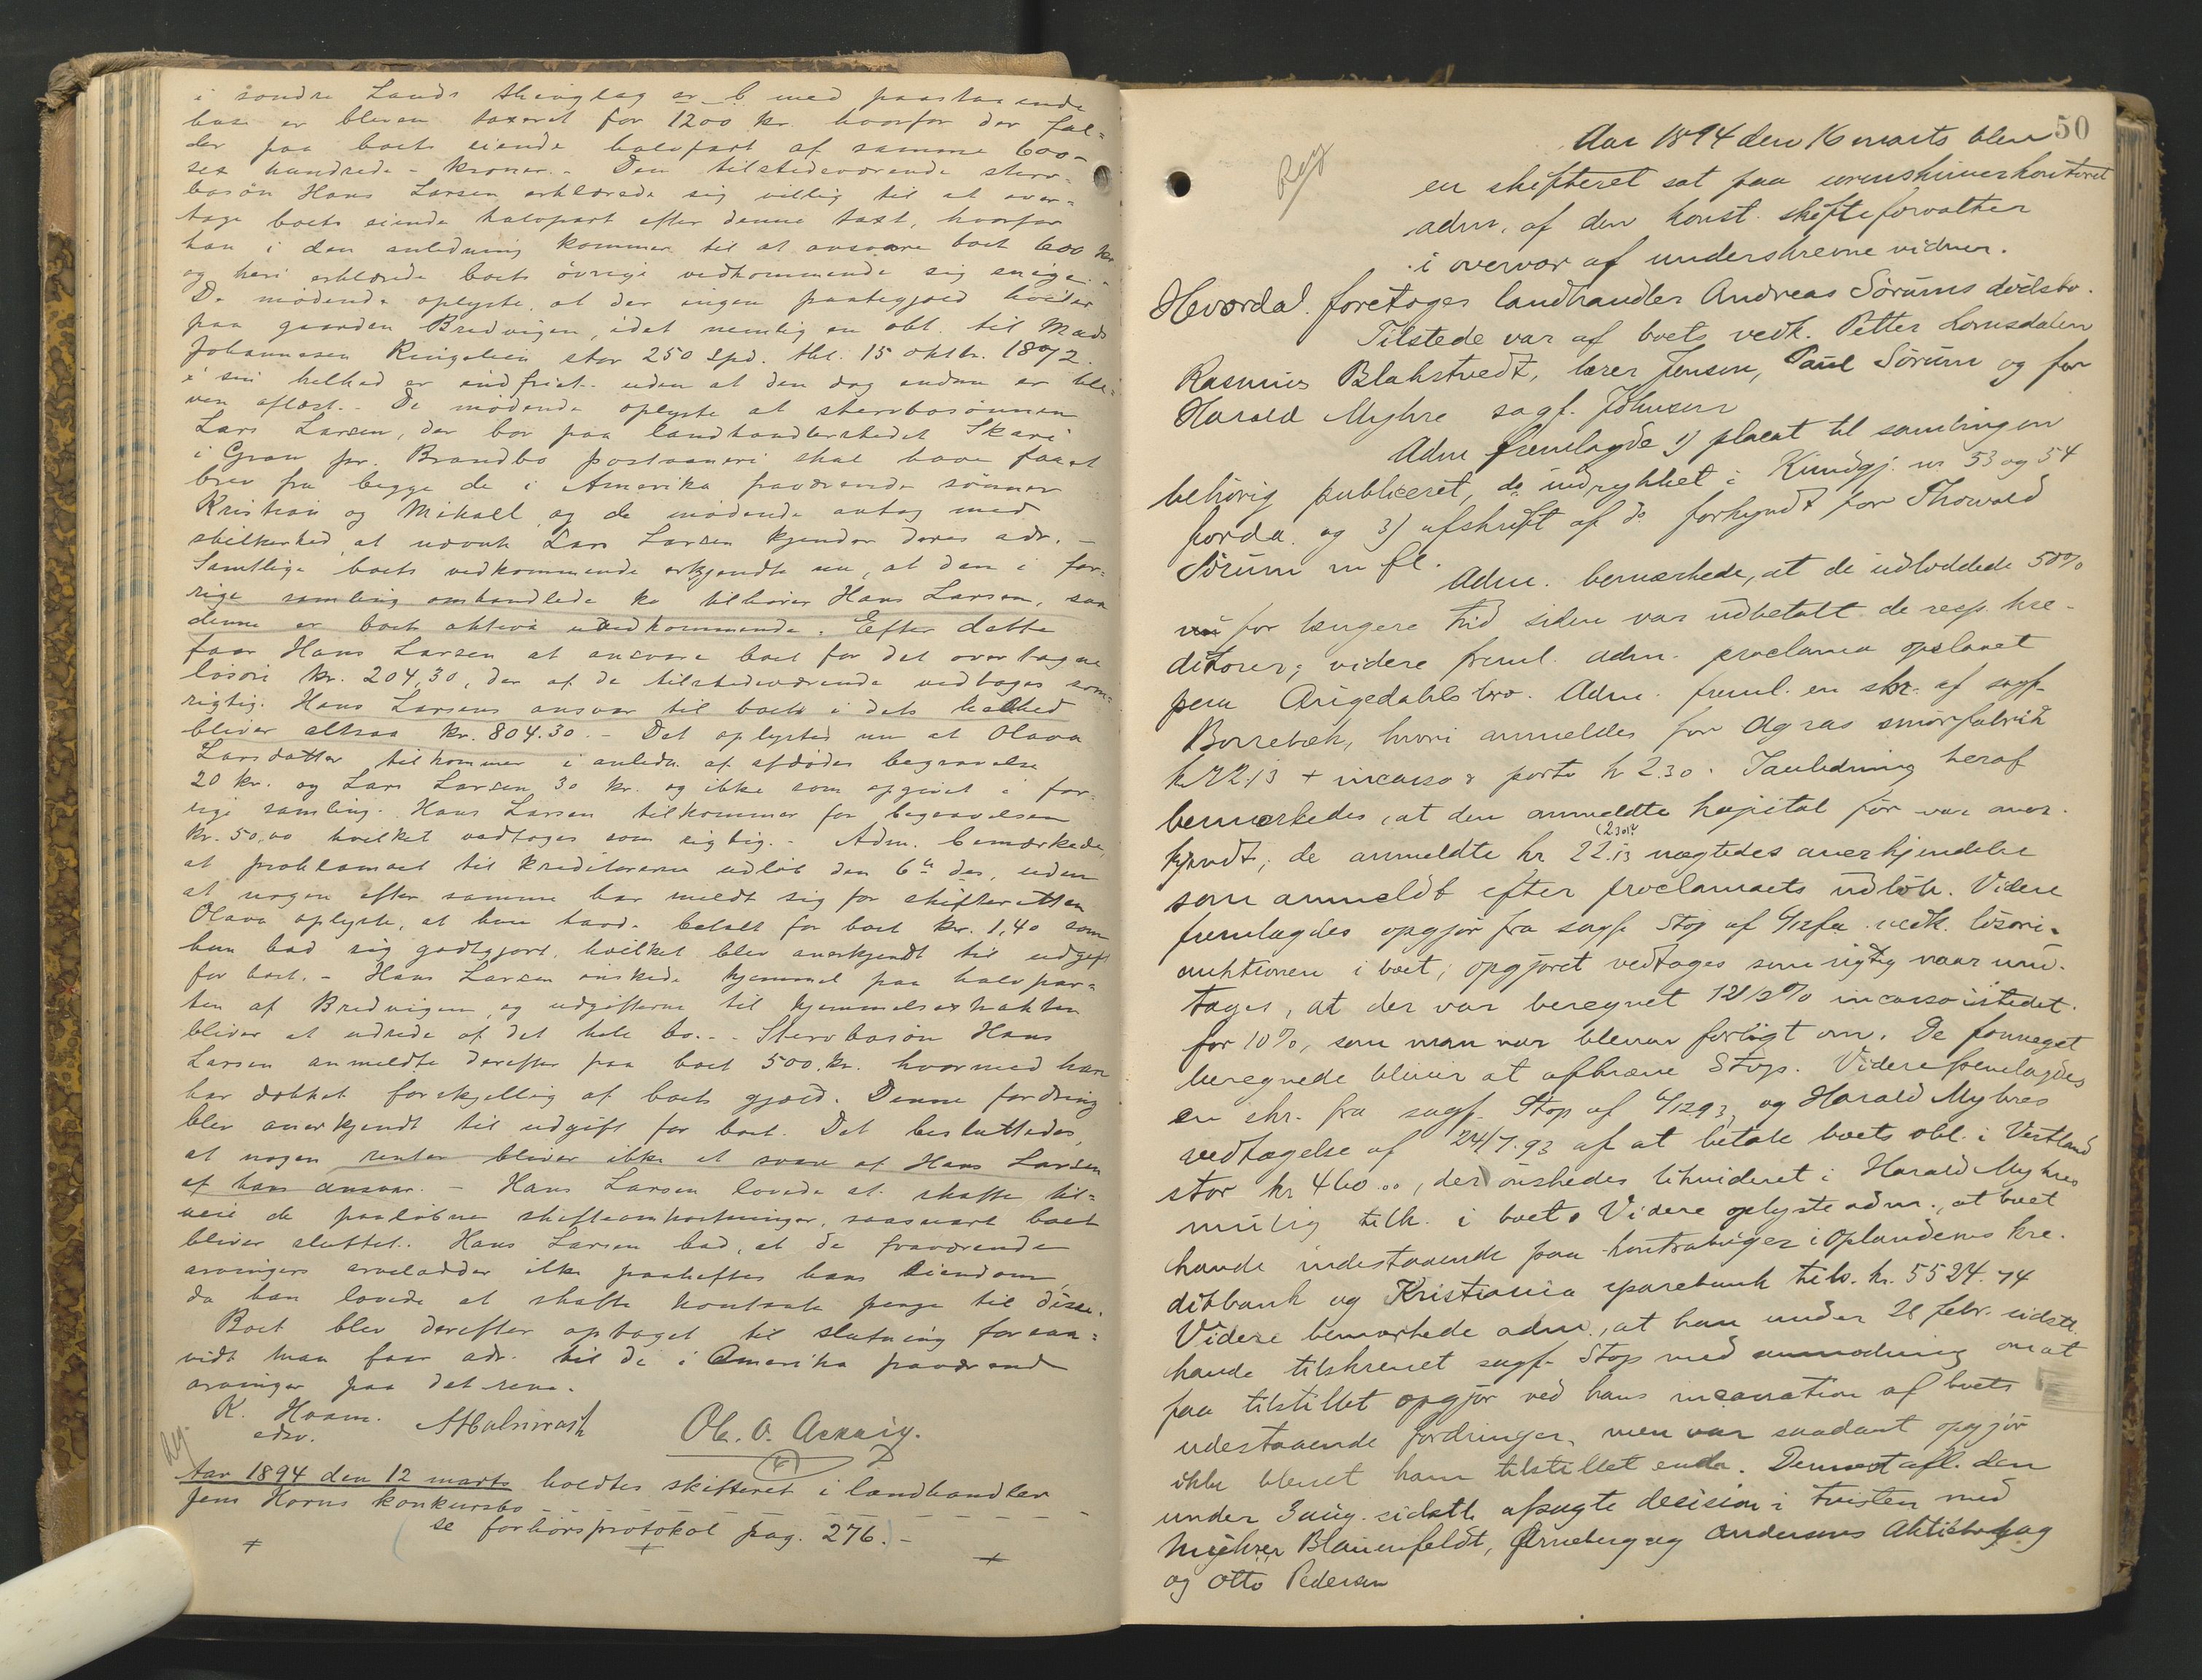 i søndre Lands thinglag er b med paastaaende
hus er bleven taxeret for 1200 kr. hvorfor der fal=
der paa boets eiende halvpart af samme 600 –
sex hundrede – kroner. – Den tilstedeværende sterv=
bosøn Hans Larsen erklærede sig villig til at over=
tage boets eiende halvpart efter denne taxt, hvorfor
han i den anledning kommer til at ansvare boet 600 kr
og heri erklærede boets øvrige vedkommende sig enige. –
De mødende oplyste, at der ingen pantegjæld hviler
paa gaarden Bredvigen, idet nemlig en obl. til Mads
Johannesen Ringelien stor 250 Spd. thl. 15 oktbr. 1872.
i sin helhed er indfriet uden at den dog endnu er ble=
ven aflæst. – De mødende oplyste at stervbosønnen
Lars Larsen, der bor paa landhandlerstedet Skari
i Gran pr. Brandbo postaaneri skal have faaet
brev fra begge de i Amerika fraværende sønner
Kristian og Mikael og de mødende antog med
sikkerhed at nævnte Lars Larsen kjender deres adr. –
Samtlige boets vedkommende erkjendte nu, at den i for=
rige samling omhandlede ko tilhører Hans Larsen, saa
denne er boets aktiva uvedkommende. Efter dette
faar Hans Larsen at ansvare boet for det overtagne
løsøre kr. 204,30, der af de tilstedeværende vedtoges som
rigtig. Hans Larsens ansvar til boet i dets helhed
bliver altsaa kr. 804.30. – Det oplystes nu at Olava
Larsdatter tilkommer i anledn. af afdødes begravelse
20 kr. og Lars Larsen 30 kr. og ikke som opgivet i for=
rige samling. Hans Larsen tilkommer for begravelsen
kr. 50,00 hvilket vedtoges som rigtig. – Adm. bemærkede,
at proklamaet til kreditorerne udløb den 6te ds, uden
at nogen efter samme har meldt sig for skifteretten
Olava oplyste, at hun havde betalt for boet kr. 1,40 som
hun bad sig godtgjort, hvilket blev anerkjendt til udgift
for boet. – Hans Larsen ønskede hjemmel paa halvpar=
ten af Bredvigen, og udgifterne til hjemmelsextrakten
bliver at udrede af det hele bo. – Stervbosøn Hans
Larsen anmeldte derefter paa boet 500 kr. hvormed han
har dækket forskjellig af boets gjæld. Denne fordring
blev anerkjendt til udgift for boet. Det besluttedes,
at nogen renter bliver ikke at svare af Hans Larsen
af hans ansvar. – Hans Larsen lovede at skaffe til=
veie de paaløbne skifteomkostninger, saasnart boet
bliver sluttet. Hans Larsen bad, at de fraværende
arvingers arvelodder ikke paaheftes hans eiendom,
da han lovede at skaffe kontante penge til disse.
Boet blev derefter optaget til slutning forsaa=
vidt man faar adr. til de i Amerika fraværende
arvinger paa det rene.
K. Haam. AHalmrast Ol. O. Aasnig.
edsv.
Aar 1894 den 12 marts holdtes skifteret i landhandler
Jens Horns konkursbo
(se forhørsprotokol pag. 276.) –
50
Reg
Aar 1894 den 16 marts blev
en skifteret sat paa sorenskriverkontoret
adm. af den konst. skifteforvalter
i overvær af underskrevne vidner.
Hvorda foretoges landhandler Andreas Sørums dødsbo.
Tilstede var af boets vedk. Petter Lomsdalen
Rasmus Blakstvedt, lærer Jensen, Paul Sørum og for
Harald Myhre sagf. Johnsen
Adm fremlagde 1) placat til samlingen
behørig publiceret, do indrykket i Kundgj. nr 53 og 54
forda. og 3) afskrift af do forkyndt for Thorvald
Sørum m fl.
Adm. bemærkede, at de udloddede 50%
for længere tid siden var udbetalt de resp. kre-
ditorer; videre freml. adm. proclama opslaaet
paa Angedahls bro. Adm. freml. en skr. af sagf.
Borrebæk, hvori anmeldes for Agras smørfabrik
kr 72.13 + incasso & porto kr 2.30. I anledning heraf
bemærkedes, at den anmeldte kapital før var aner-
kjendt; de anmeldte kr 22.13 nægtedes anerkjendelse
som anmeldt efter proclamaets udløb. Videre
fremlagdes opgjør fra sagf. Stop af vedk. løsøre-
auktionen i boet; opgjøret vedtoges som rigtig naar und-
tages, at der var beregnet 12 1/2 % incasso istedet
for 10%, som man var bleven forligt om. De formeget
beregnede bliver at afkræve Stop. Videre fremlagdes
en skr. fra sagf. Stop af 4/12 93, og Harald Myhres
vedtagelse af 24/7.93 af at betale boets obl. i Vestland
stor kr 460.00, der ønskedes likvideret i Harald Myhres
mulig tilk. i boet. Videre oplyste adm., at boet
havde indestaaende paa kontrabøger i Oplandenes kre-
ditbank og Kristiania sparebank tils. kr. 5524.74
Videre bemærkede adm., at han under 28 febr. sidstl.
havde tilskrevet sagf. Stop med anmodning om at
faa tilstillet opgjør ved hans incassation af boets
udestaaende fordringer, men var saadant opgjør
ikke blevet ham tilstillet endu. Dernæst afl. den
under 3 aug. sidstl. afsagte decision i tvisten med
Blauenfeldt, Ørneberg og Andersens Aktiebolag
og Otto Pedersen